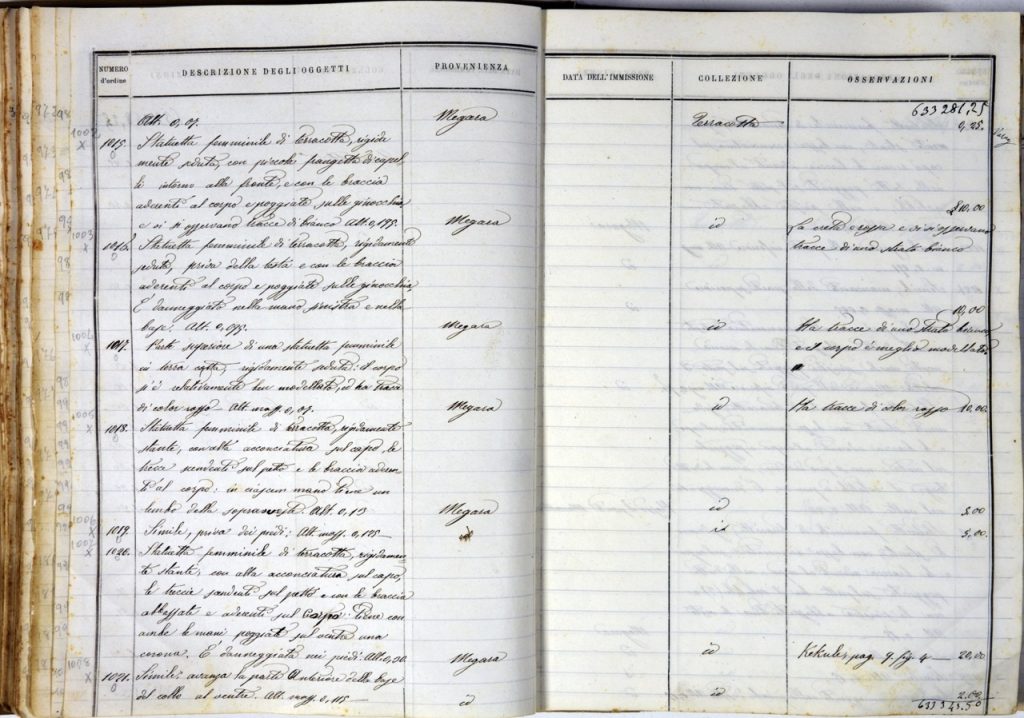 NUMERO d'ordine
DESCRIZIONE DEGLI OGGETTI
PROVENIENZA
DATA DELL'IMMISSIONE
COLLEZIONE
OSSERVAZIONI
633 281,25
Alt. 0,07. Megara Terracotta 0,25.
1015. Statuetta femminile di terracotta, rigida
mente seduta, con piccola frangetta di capel
li intorno alla fronte, e con le braccia
aderenti al corpo e poggiate sulle ginocchia
e vi si osservano tracce di bianco Alt. 0,175. Megara id 10,00
1016. Statuetta femminile di terracotta, rigidamente La creta è rossa e vi si osservano
seduta, priva della testa e con le braccia tracce di uno strato bianco
aderenti al corpo e poggiate sulle ginocchia
È danneggiata nella mano sinistra e nella 10,00
base. Alt. 0,095. Megara id Ha tracce di uno strato bianco
1017. Parte superiore di una statuetta femminile e il corpo è meglio modellato
in terra cotta, rigidamente seduta: il corpo
si è relativamente ben modellato, ed ha tracce
di color rosso. Alt. mass. 0,07. Megara id Ha tracce di color rosso 10.00.
1018. Statuetta femminile di terracotta, rigidamente
stante, con alta acconciatura sul capo, le
trecce scendenti sul petto e le braccia aderen
ti al corpo: in ciascun mano tiene un
lembo della sopravveste. Alt. 0,19 Megara id 5.00
1019. Simile, priva dei piedi: Alt. mass. 0,185 id id 5.00.
1020. Statuetta femminile di terracotta, rigidamen
te stante, con alta acconciatura sul capo,
le treccie scendenti sul petto e con le braccia
abbassate e aderenti sul corpo: tiene con
ambe le mani poggiate sul ventre una
corona. È danneggiata nei piedi: Alt. 0,20. Megara id Kekulè, pag. 9. fig. 4 20,00
1021. Simile: avanza la parte anteriore dalla base
del collo al ventre. Alt. mass. 0,115 id id 2.00
633 343.50